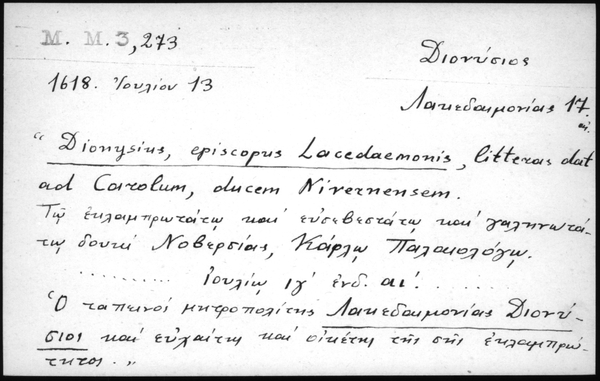 M. M. 3, 273
Διονύσιος
1618. Ἰουλίου 13
Λακεδαιμονίας 17.
αἰ.
“Dionysius, episcopus Lacedaemonis, litteras dat
ad Carolum, ducem Nivernensem.
Τῷ ἐκλαμπρωτάτῳ καί εὐσεβεστάτῳ καί γαληνωτά-
τῳ δουκί Νοβερσίας, Κάρλῳ Παλαιολόγῳ.
......... Ἰουλίῳ ιγ΄ ἐνδ. αί. .........
Ὁ ταπεινός μητροπολίτης Λακεδαιμονίας Διονύ-
σιος καί εὐχαίτης καί οἰκέτης τῆς σῆς ἐκλαμπρώ-
τητος.”